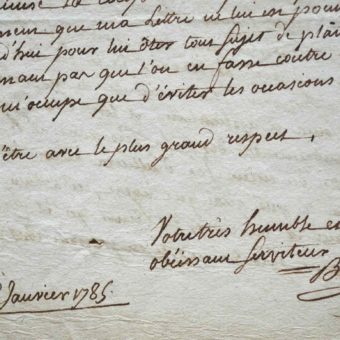 que ma Lettre ne lui en
d'hui pour lui ôter tous sujet de
par que l'on en fasse contre
qu'occupe que d'éviter les occasions
être avec le plus grand respect,
Votre très humble et
obéissant Serviteur
Janvier 1785